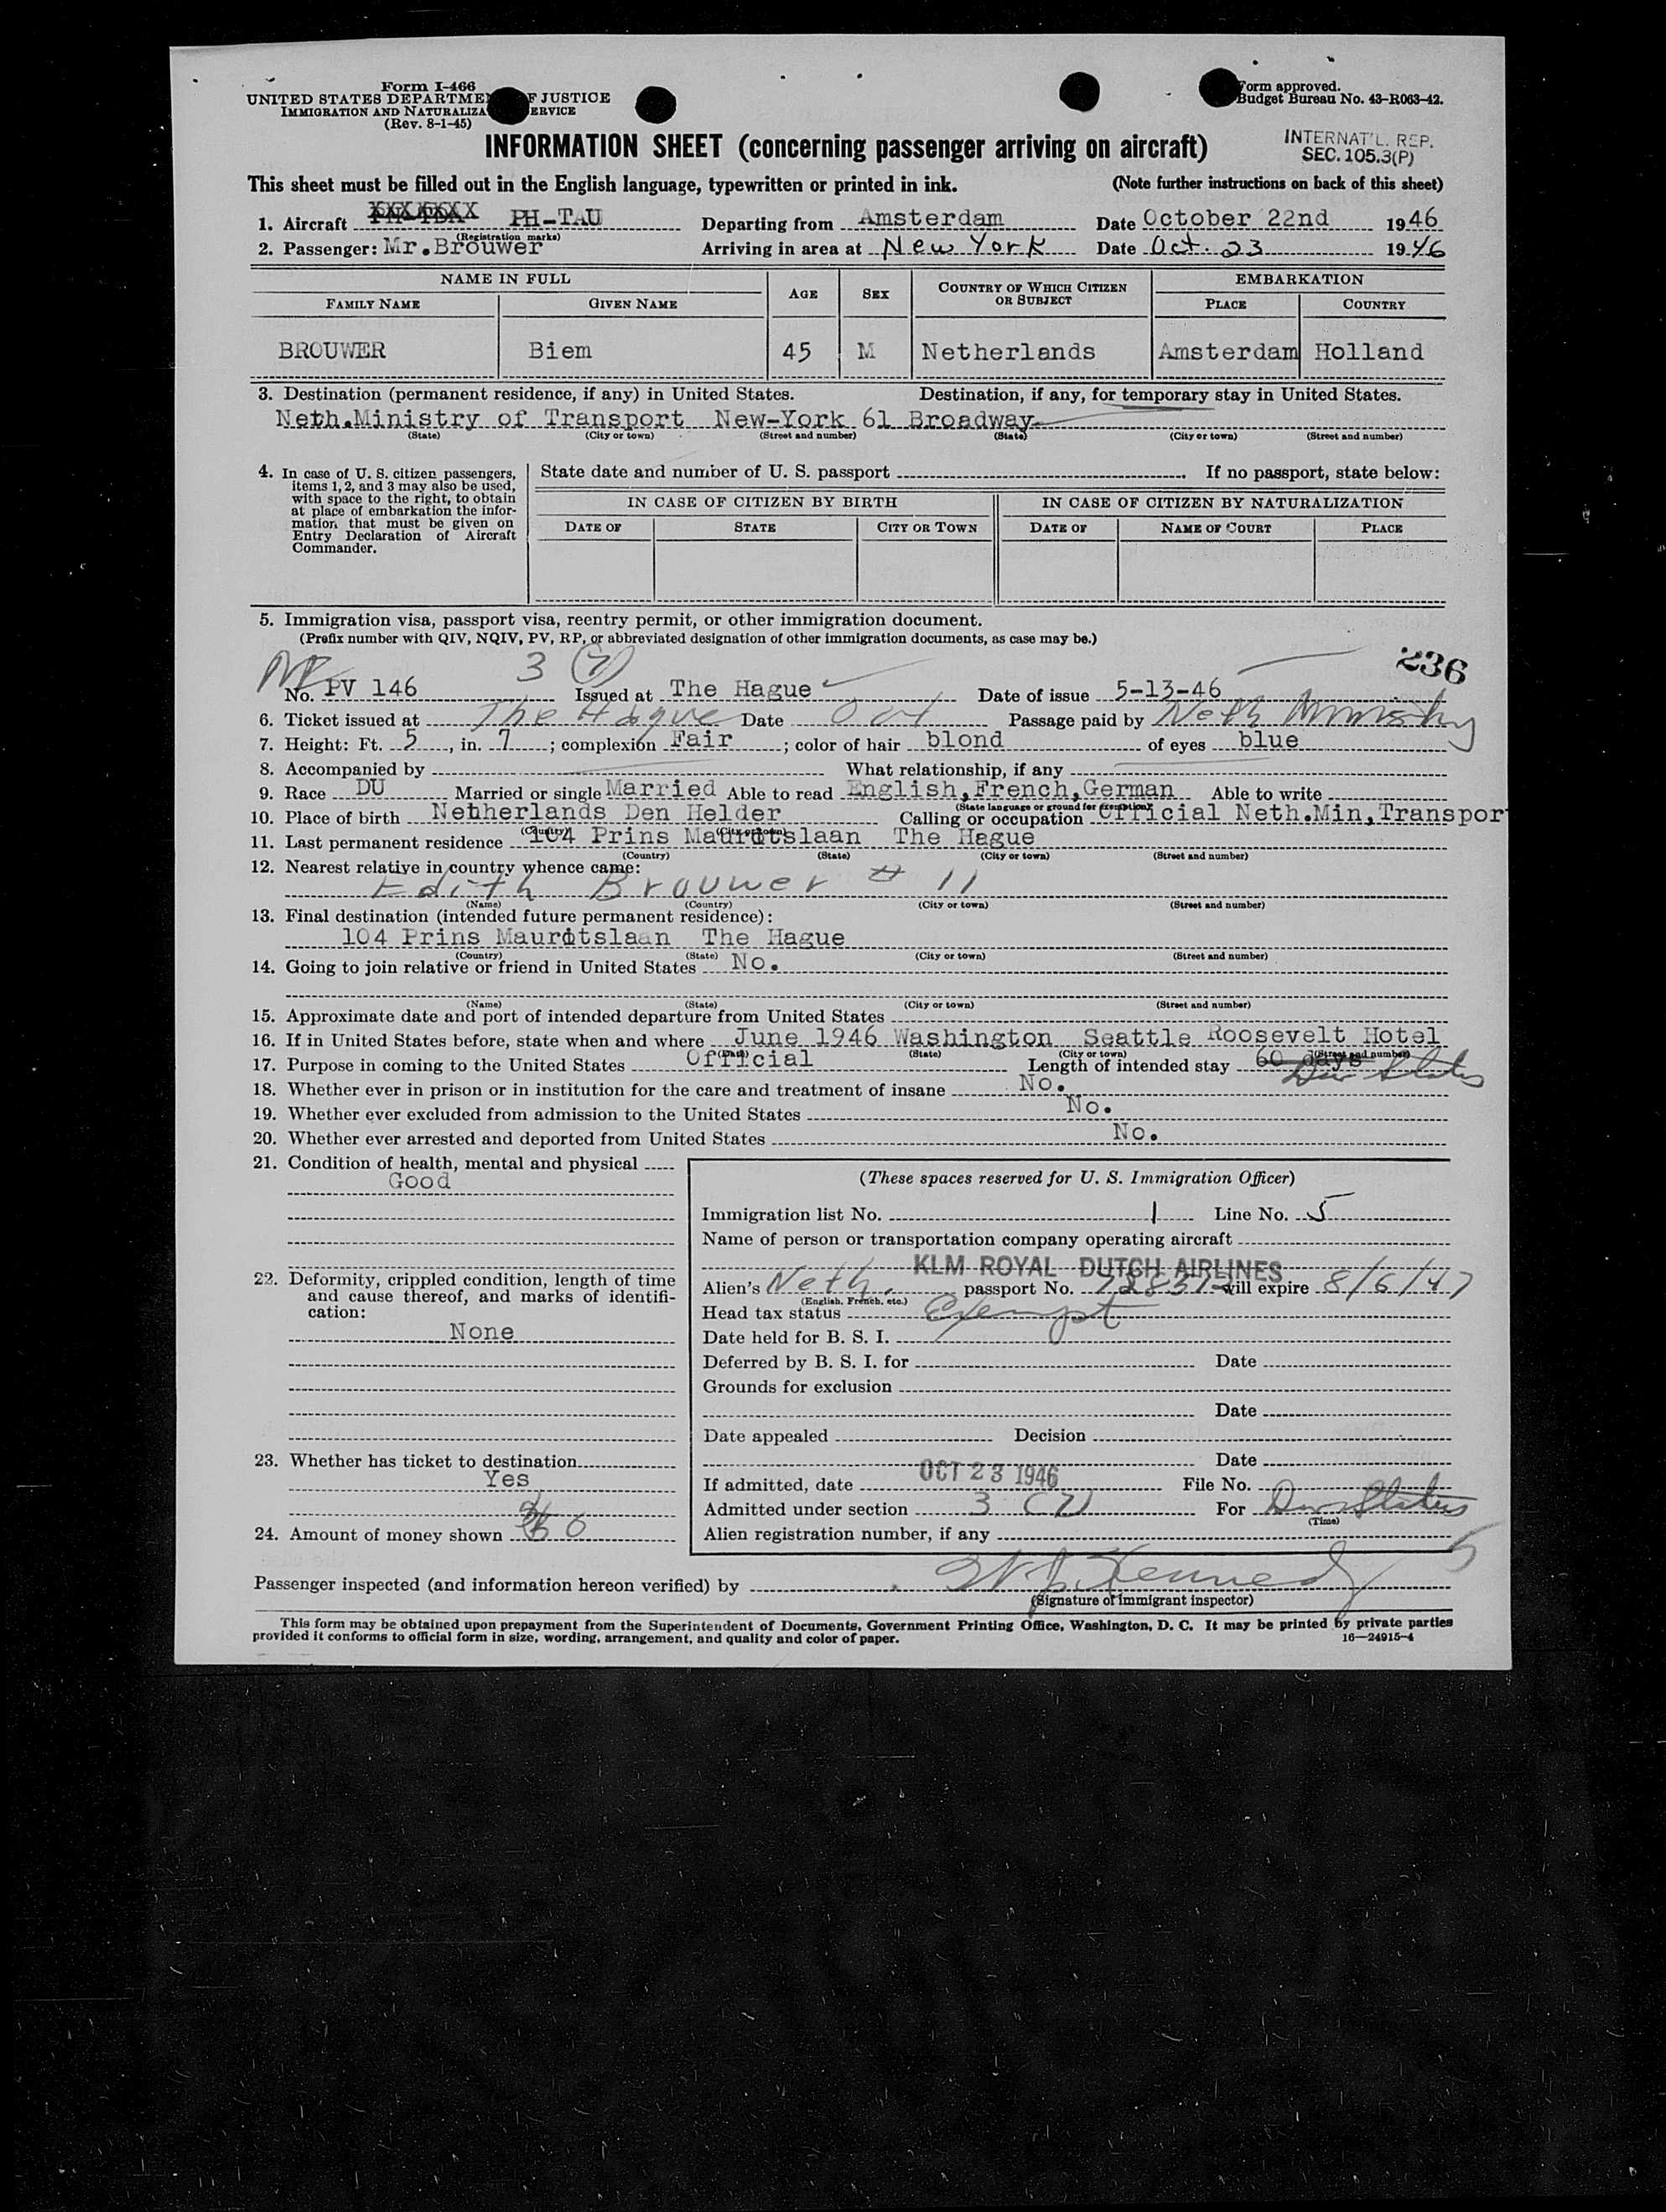 Form I-466
UNITED STATES DEPARTME F JUSTICE
IMMIGRATION AND NATURALIZA ERVICE
(Rev. 8-1-45)
Form approved.
Budget Bureau No. 43-R063-42.
INFORMATION SHEET (concerning passenger arriving on aircraft)
INTERNAT'L. REP.
SEC. 105.3(P)
This sheet must be filled out in the English language, typewritten or printed in ink. (Note further instructions on back of this sheet)
1. Aircraft PH-TAU Departing from Amsterdam Date October 22nd 1946
(Registration marks)
2. Passenger: Mr.Brouwer Arriving in area at New York Date Oct. 23 1946
NAME IN FULL AGE SEX COUNTRY OF WHICH CITIZEN OR SUBJECT EMBARKATION
FAMILY NAME GIVEN NAME PLACE COUNTRY
BROUWER Biem 45 M Netherlands Amsterdam Holland
3. Destination (permanent residence, if any) in United States. Destination, if any, for temporary stay in United States.
Neth.Ministry of Transport New-York 61 Broadway
(State) (City or town) (Street and number) (State) (City or town) (Street and number)
4. In case of U. S. citizen passengers, items 1, 2, and 3 may also be used, with space to the right, to obtain at place of embarkation the information that must be given on Entry Declaration of Aircraft Commander.
State date and number of U. S. passport If no passport, state below:
IN CASE OF CITIZEN BY BIRTH IN CASE OF CITIZEN BY NATURALIZATION
DATE OF STATE CITY OR TOWN DATE OF NAME OF COURT PLACE
5. Immigration visa, passport visa, reentry permit, or other immigration document.
(Prefix number with QIV, NQIV, PV, RP, or abbreviated designation of other immigration documents, as case may be.)
3 (7) 236
No. PV 146 Issued at The Hague Date of issue 5-13-46
6. Ticket issued at The Hague Date Oct Passage paid by Neth Ministry
7. Height: Ft. 5, in. 7; complexion Fair; color of hair blond of eyes blue
8. Accompanied by What relationship, if any
9. Race DU Married or single Married Able to read English,French,German Able to write
(State language or ground for exemption)
10. Place of birth Netherlands Den Helder Calling or occupation Official Neth.Min,Transpor
(Country) (City or town)
11. Last permanent residence 104 Prins Mauritslaan The Hague
(Country) (State) (City or town) (Street and number)
12. Nearest relative in country whence came:
Edith Brouwer # 11
(Name) (Country) (City or town) (Street and number)
13. Final destination (intended future permanent residence):
104 Prins Mauritslaan The Hague
(Country) (State) (City or town) (Street and number)
14. Going to join relative or friend in United States No.
(Name) (State) (City or town) (Street and number)
15. Approximate date and port of intended departure from United States
16. If in United States before, state when and where June 1946 Washington Seattle Roosevelt Hotel
(Date) (State) (City or town) (Street and number)
17. Purpose in coming to the United States Official Length of intended stay 60 days Dur Status
18. Whether ever in prison or in institution for the care and treatment of insane No.
19. Whether ever excluded from admission to the United States No.
20. Whether ever arrested and deported from United States No.
21. Condition of health, mental and physical
Good
22. Deformity, crippled condition, length of time and cause thereof, and marks of identification:
None
23. Whether has ticket to destination
Yes
24. Amount of money shown
(These spaces reserved for U. S. Immigration Officer)
Immigration list No. 1 Line No. 5
Name of person or transportation company operating aircraft
KLM ROYAL DUTCH AIRLINES
Alien's Neth. passport No. will expire 8/6/47
(English, French, etc.)
Head tax status Exempt
Date held for B. S. I.
Deferred by B. S. I. for Date
Grounds for exclusion
Date
Date appealed Decision
Date
If admitted, date OCT 23 1946 File No.
Admitted under section 3 (7) For Dur Status
(Time)
Alien registration number, if any
5
Passenger inspected (and information hereon verified) by Kennedy
(Signature of immigrant inspector)
This form may be obtained upon prepayment from the Superintendent of Documents, Government Printing Office, Washington, D. C. It may be printed by private parties
provided it conforms to official form in size, wording, arrangement, and quality and color of paper. 16—24915-4